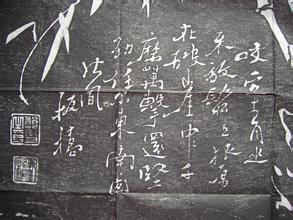 咬定青山
放鬆立根原
在破崖中千
磨萬擊還堅
勁任尔東南西
北風
板橋